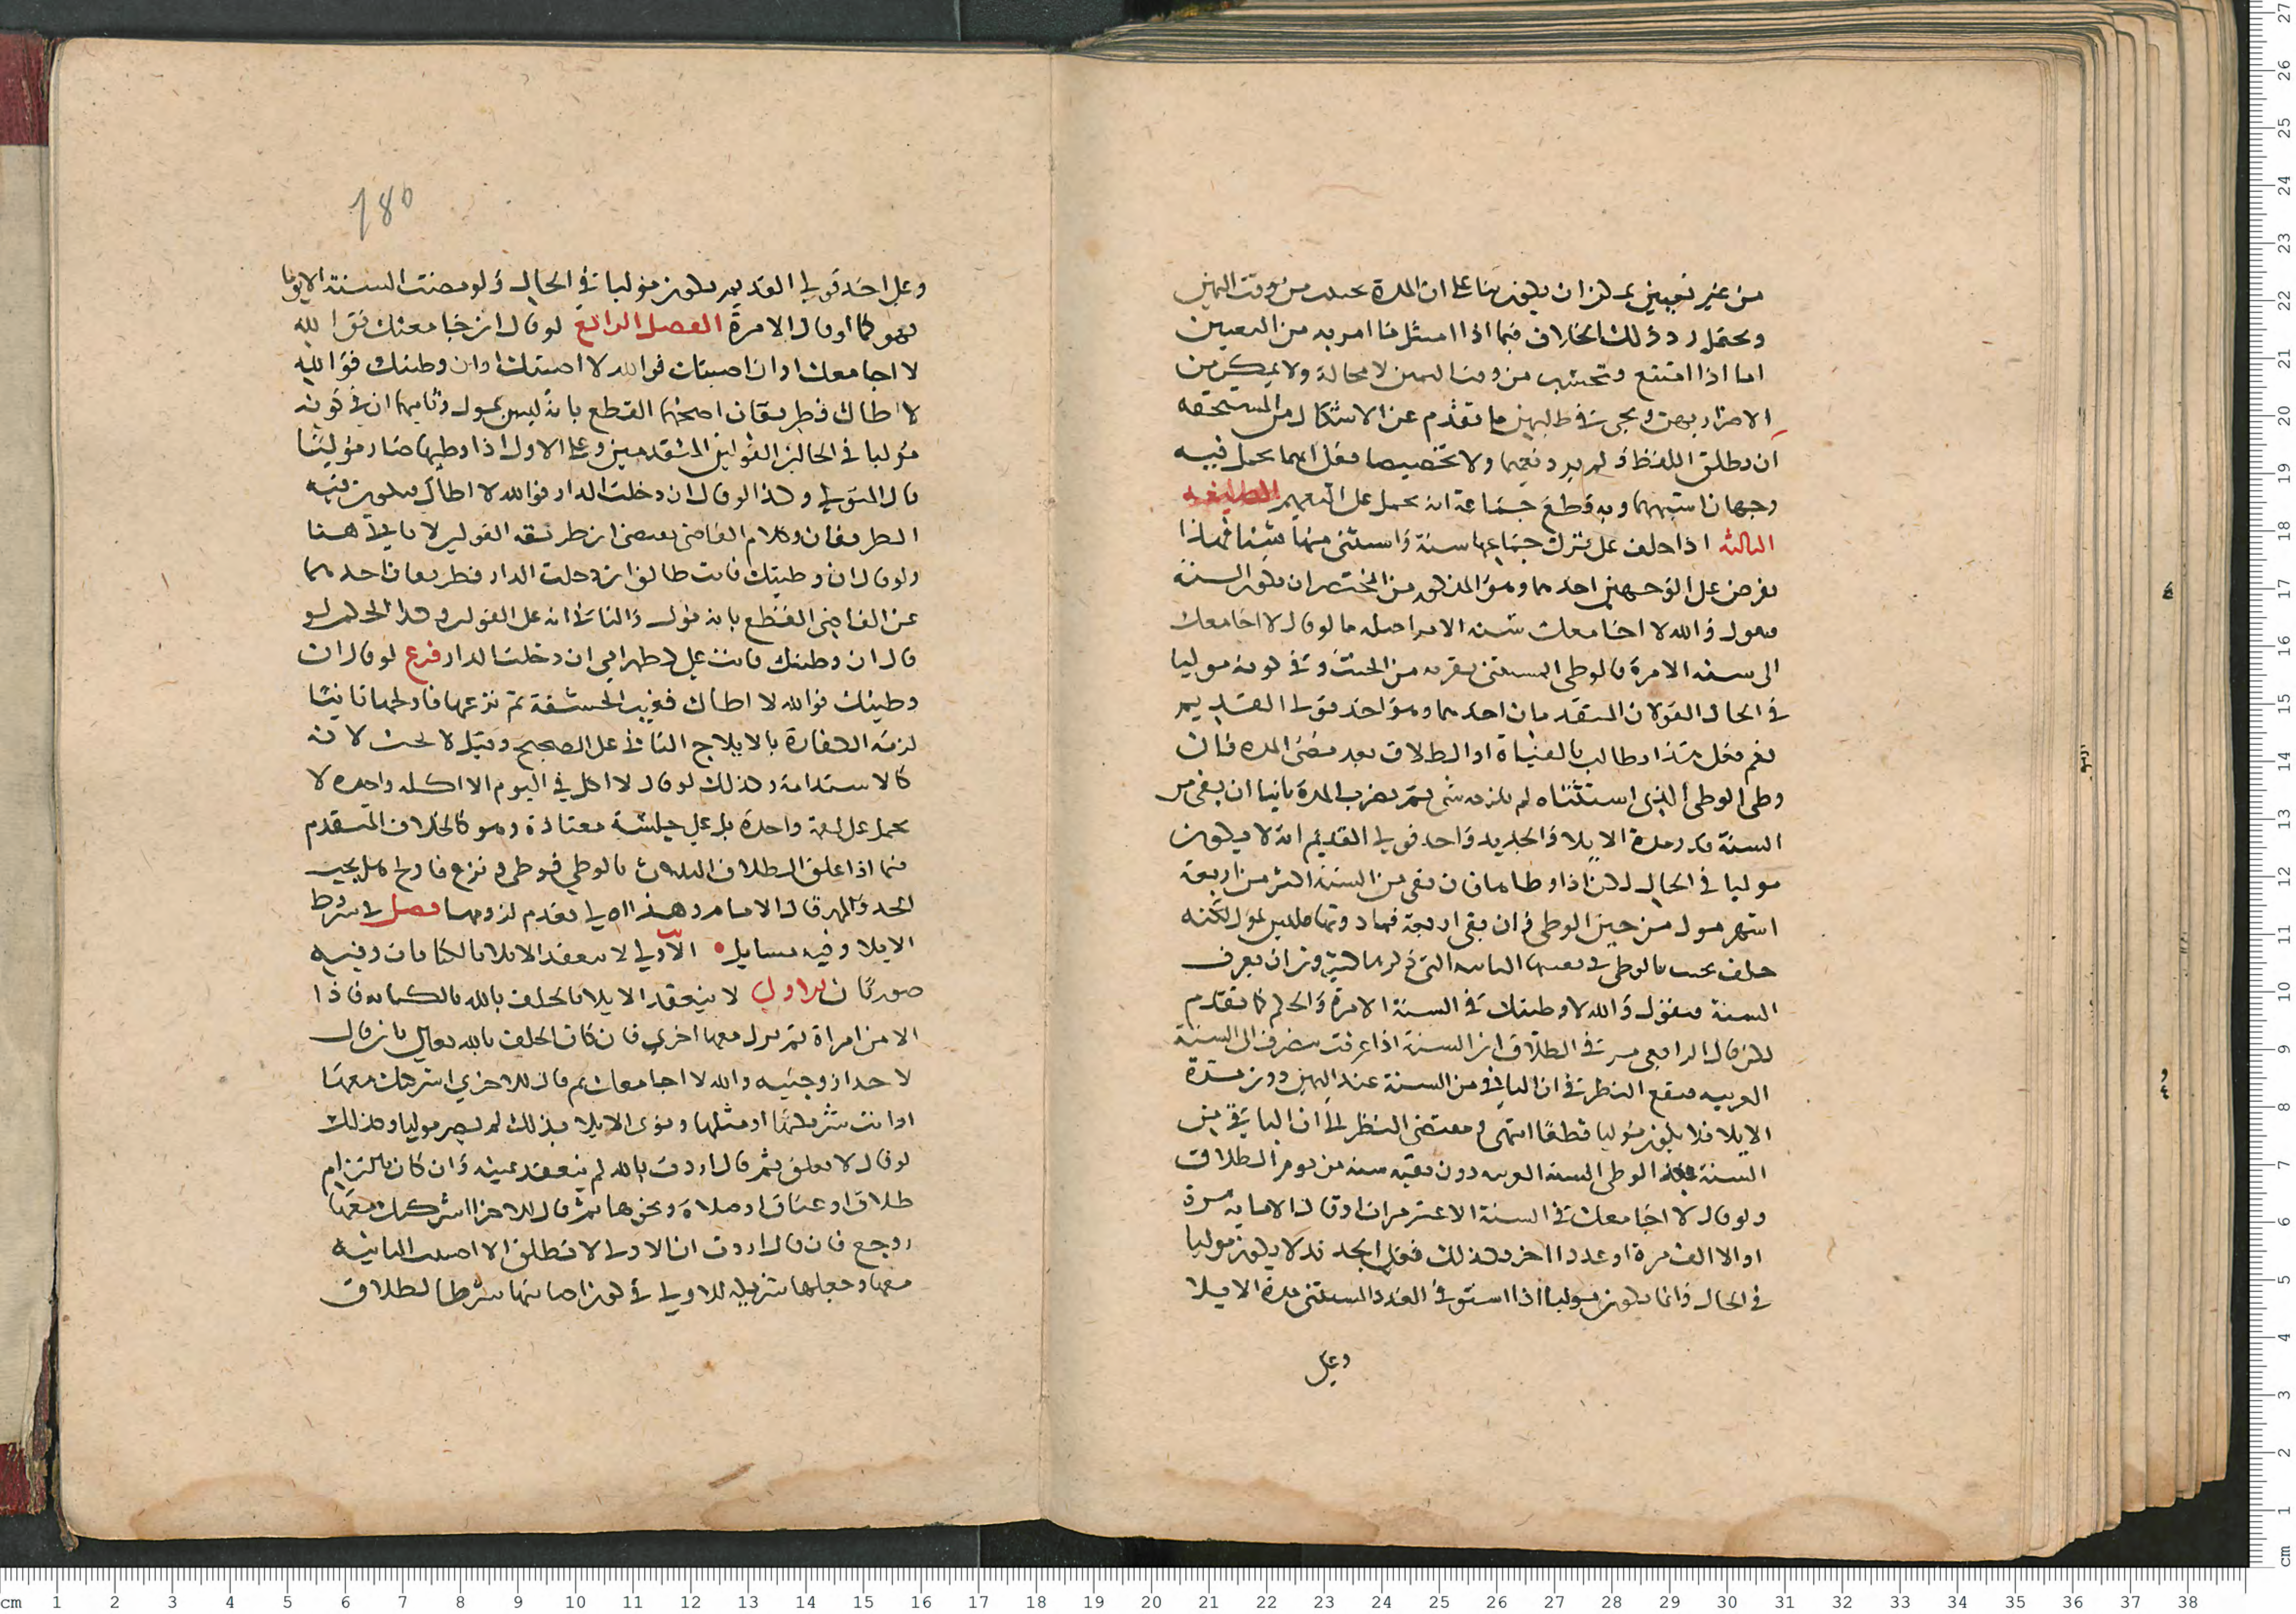 من غير تعيين يمكن ان يكون بنا على ان المدة تحسب من وقت اليمين
ويحتمل رد ذلك الخلاف فيما اذا امتثل ما امر به من التعيين
اما اذا امتنع وتحتسب من وقت اليمين لا محالة ولا يمكن من
الاضرار بهن ويجي في طلبهن ما تقدم عن الاشكال من المستحقه
ان يطلق اللفظ ولم يرد تعميما ولا تخصيصا فعلى ايهما يحمل فيه
وجهان اشبههما وبه قطع جماعة انه يحمل على التعميم
الثالثه اذا حلف على ترك جماعها سنة واستثنى منها شيئا فهذا
يفرض على الوجهين احدهما وهو المذكور من المختصر ان يكون السنة
فيقول والله لا اجامعك سنه الا مرا اصله ما لو قال لا اجامعك
الى سنه الا مرة فالوطى المستثنى يقربه من الحنث وفي كونه موليا
في الحال القولان المتقدمان احدهما وهو احد قولى القديم
نعم فعلى هذا يطالب بالفياة او الطلاق بعد مضى المده فان
وطى الوطى الذي استثناه لم يلزمه شى ثم يضرب المدة ثانيا ان بقى من
السنة قدر مدة الايلا والجديد واحد قولى القديم انه لا يكون
موليا في الحال لكن اذا وطاها فان بقى من السنة اكثر من اربعة
اشهر فمول من حين الوطى وان بقى اربعة فما دونها فليس بمول لكنه
حالف يحنث بالوطى في بعضها الثانيه التي ذكرها كثيرون ان يعرف
السنة فيقول والله لا وطيتك في السنة الا مرة والحكم كما تقدم
لكن قال الرافعي مر في الطلاق ان السنة اذا عرفت ينصرف الى السنة
العربيه فيقع النظر في ان الباقي من السنة عند اليمين دون مدة
الايلا فلا يكون موليا قطعا انتهى ومقتضى النظر الى ان الباقي من
السنة عند الوطى السنه العربيه دون بقيه سنه من يوم الطلاق
ولو قال لا اجامعك في السنة الا عشر مرات او قال الا مايه مرة
او الا الف مرة او عددا اخر فكذلك فعلى الجديد لا يكون موليا
في الحال وانما يكون موليا اذا استوفى العدد المستثنى مدة الايلا
وعلى
180
وعلى احد قولى القديم يكون موليا في الحال ولو مضت السنة الا يوما
فهو كما لو قال الا مرة الفصل الرابع لو قال ان جامعتك فوالله
لا اجامعك او ان اصبتك فوالله لا اصبتك او ان وطيتك فوالله
لا اطاك فطريقان اصحهما القطع بانه ليس بمول وثانيهما ان في كونه
موليا في الحال القولين المتقدمين وعلى الاول اذا وطيها صار موليا
قال المتولى وكذا لو قال ان دخلت الدار فوالله لا اطاك فيكون فيه
الطريقان وكلام القاضى يقتضى ان طريقه القولين لا ياتي هنا
ولو قال ان وطيتك فانت طالق ان دخلت الدار فطريقان احدهما
عن القاضى القطع بانه مول والثاني انه على القولين وكذا الحكم لو
قال ان وطيتك فانت على كظهر امي ان دخلت الدار فرع لو قال ان
وطيتك فوالله لا اطاك فغيب الحشفة ثم نزعها فاولجها ثانيا
لزمه الكفارة بالايلاج الثاني على الصحيح وقيل لا يحنث لانه
كالاستدامة وكذلك لو قال لا اكل في اليوم الا اكله واحده لا
يحمل على لقمة واحدة بل على جلسة معتادة وهو كالخلاف المتقدم
فيما اذا علق الطلاق الثلاث بالوطي فوطى ونزع فاولج هل يجب
الحد والمهر قال الامام وهذا الذي تقدم لزومها فصل في شروط
الايلا وفيه مسايل الاولى لا ينعقد الايلا بالكنايات وفيه
صورتان الاولى لا ينعقد الايلا بالحلف بالله بالكنايه فاذا
الا من امراة ثم يردد معها اخرى فان كان الحلف بالله تعالى بان قال
لاحد زوجتيه والله لا اجامعك ثم قال للاخرى اشركتك معها
او انت شريكتها او مثلها ونوى الايلا بذلك لم يصر موليا وكذلك
لو قال لا يعلق ثم قال اردت بالله لم ينعقد يمينه وان كان بالتزام
طلاق او عتاق او صلاة ونحوها ثم قال للاخرى اشركتك معها
روجع فان قال اردت ان الاولى لا تطلق الا اصبت الثانيه
معها وجعلها شريكه للاولى في كون اصابتها شرطا لطلاق